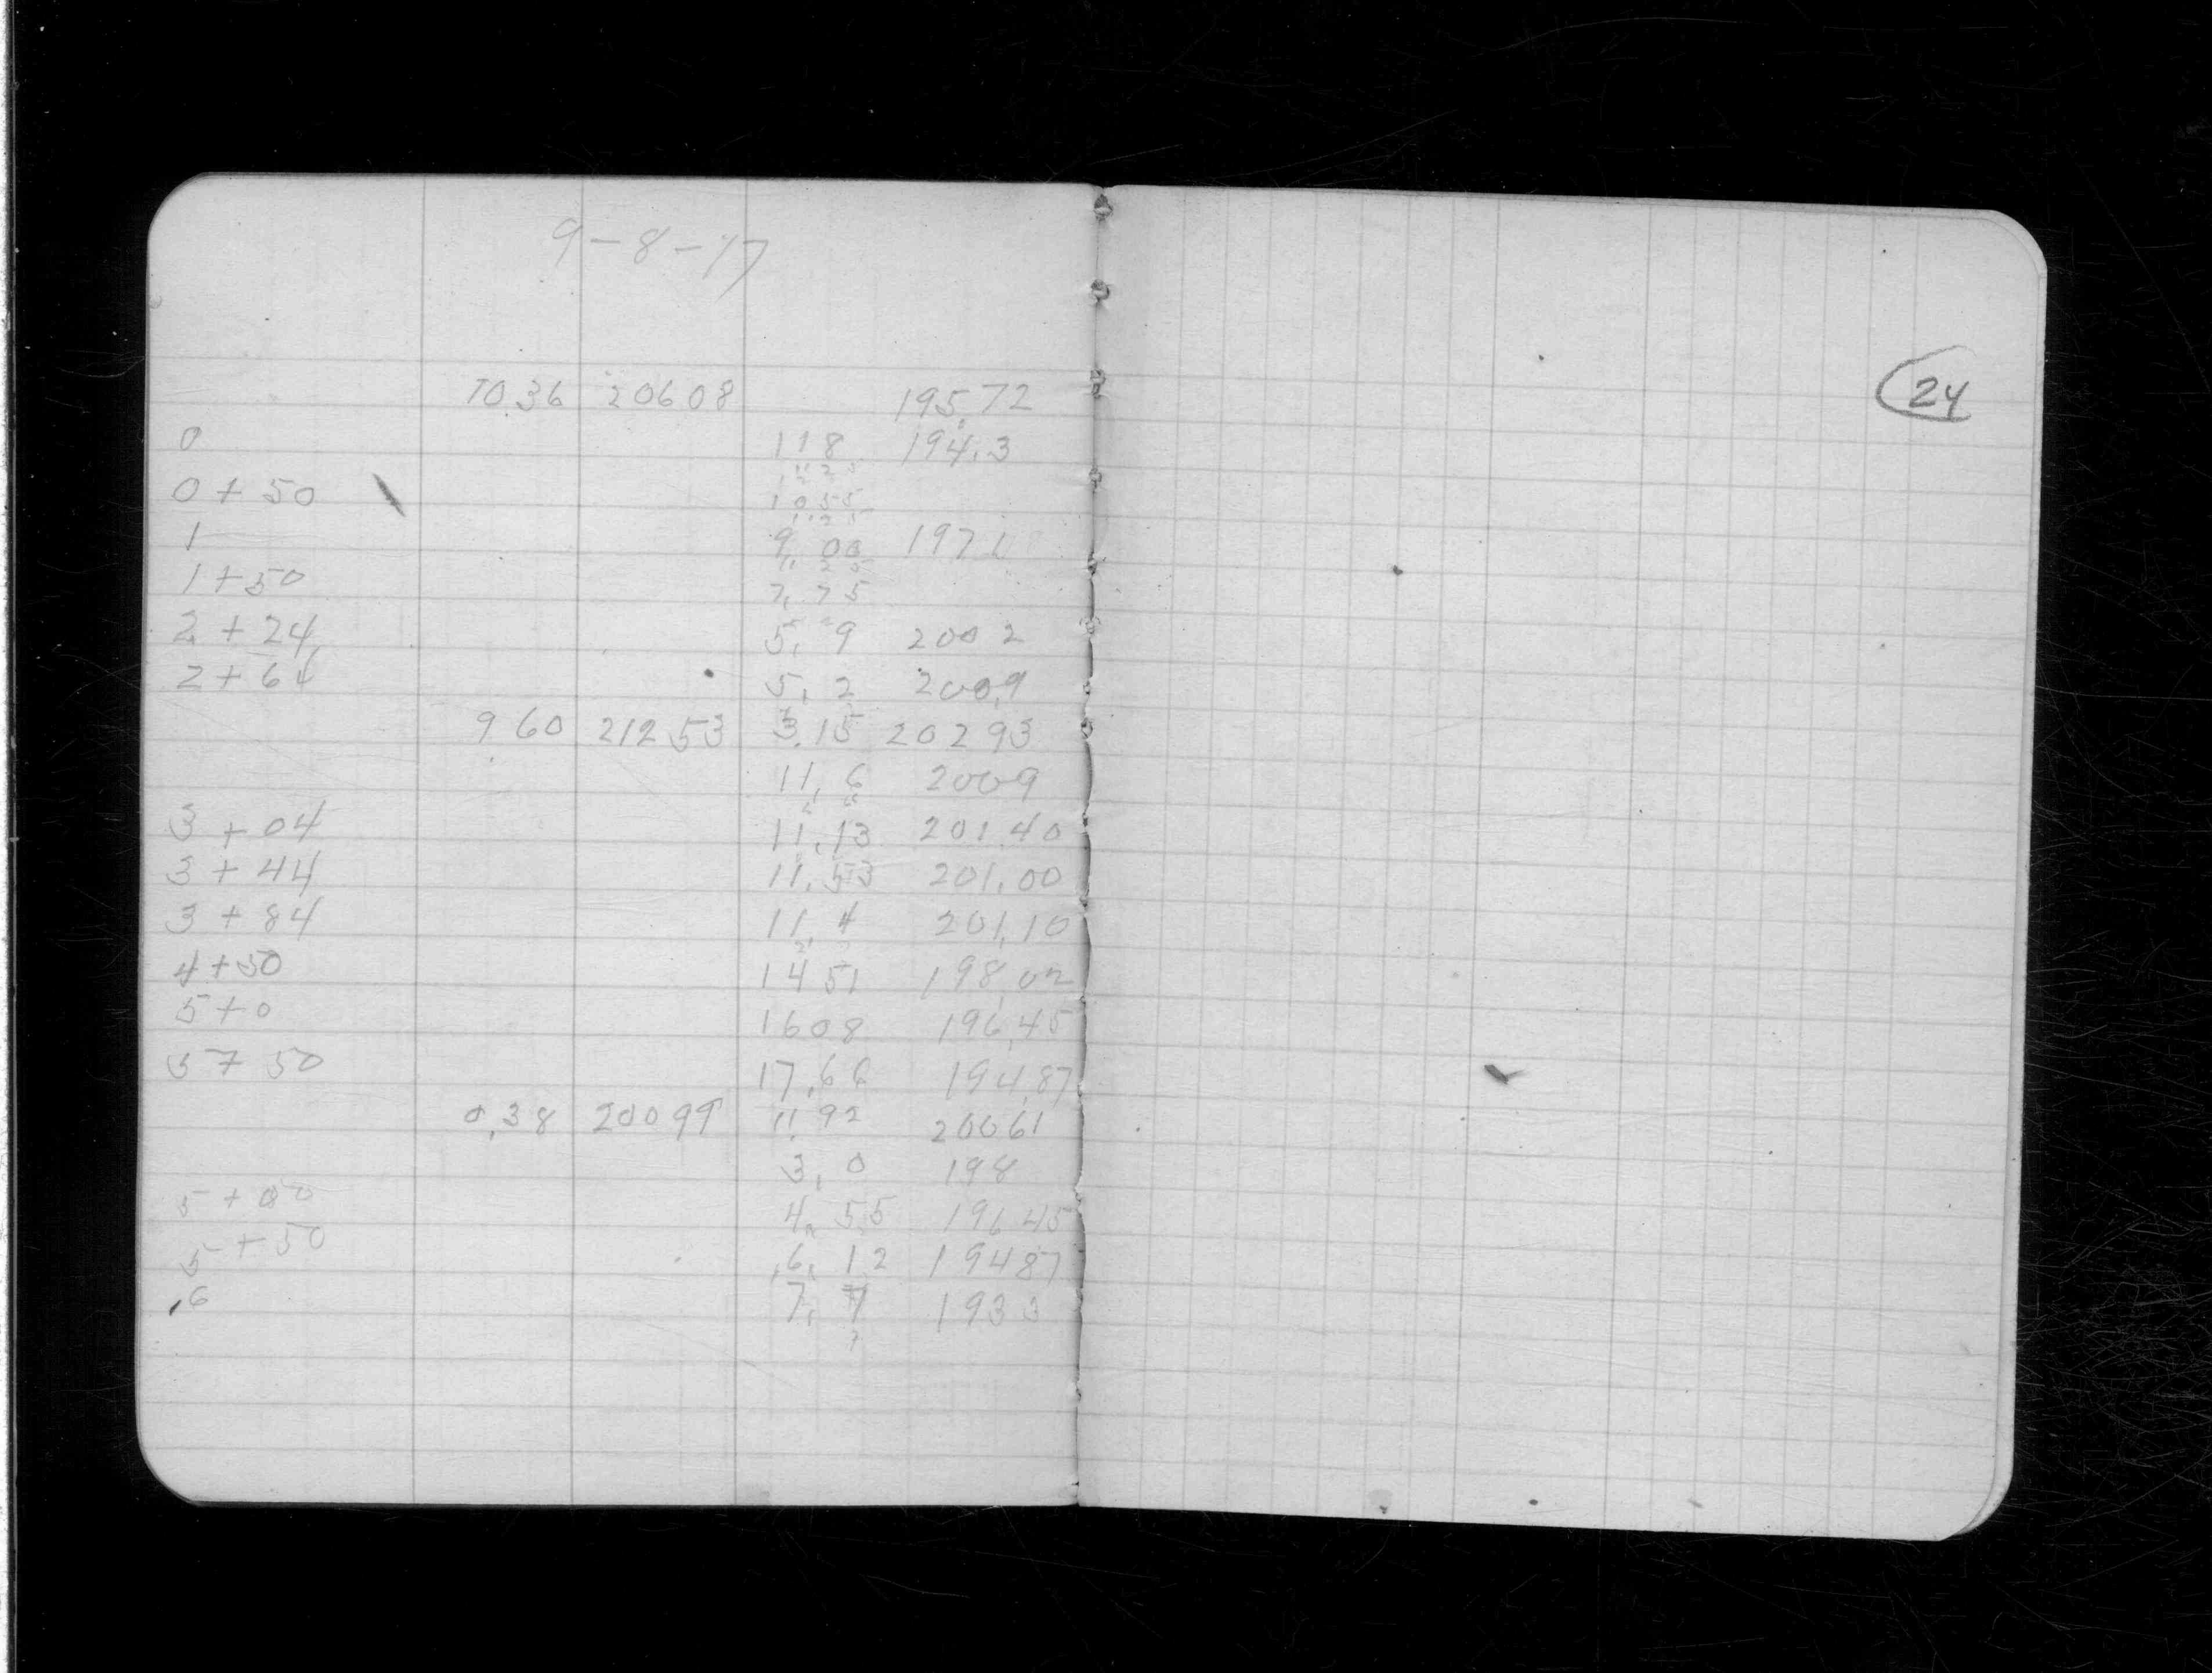 9-8-17
10.36 20608 195.72
0 118 194.3
0+50 1055
1 9.00 197.1
1+50 7.75
2+24 5.9 2002
2+64 5.2 200.9
9 60 212 53 3.15 202 93
11.6 2009
3+04 11.13 201.40
3+44 11.53 201.00
3+84 11.4 201.10
4+50 14 51 198.02
5+0 1608 196.45
5+50 17.66 194.87
0.38 20099 11.92 20061
3.0 198
5+00 4.55 196 45
5+50 6.12 19487
6 7.7 1933
24